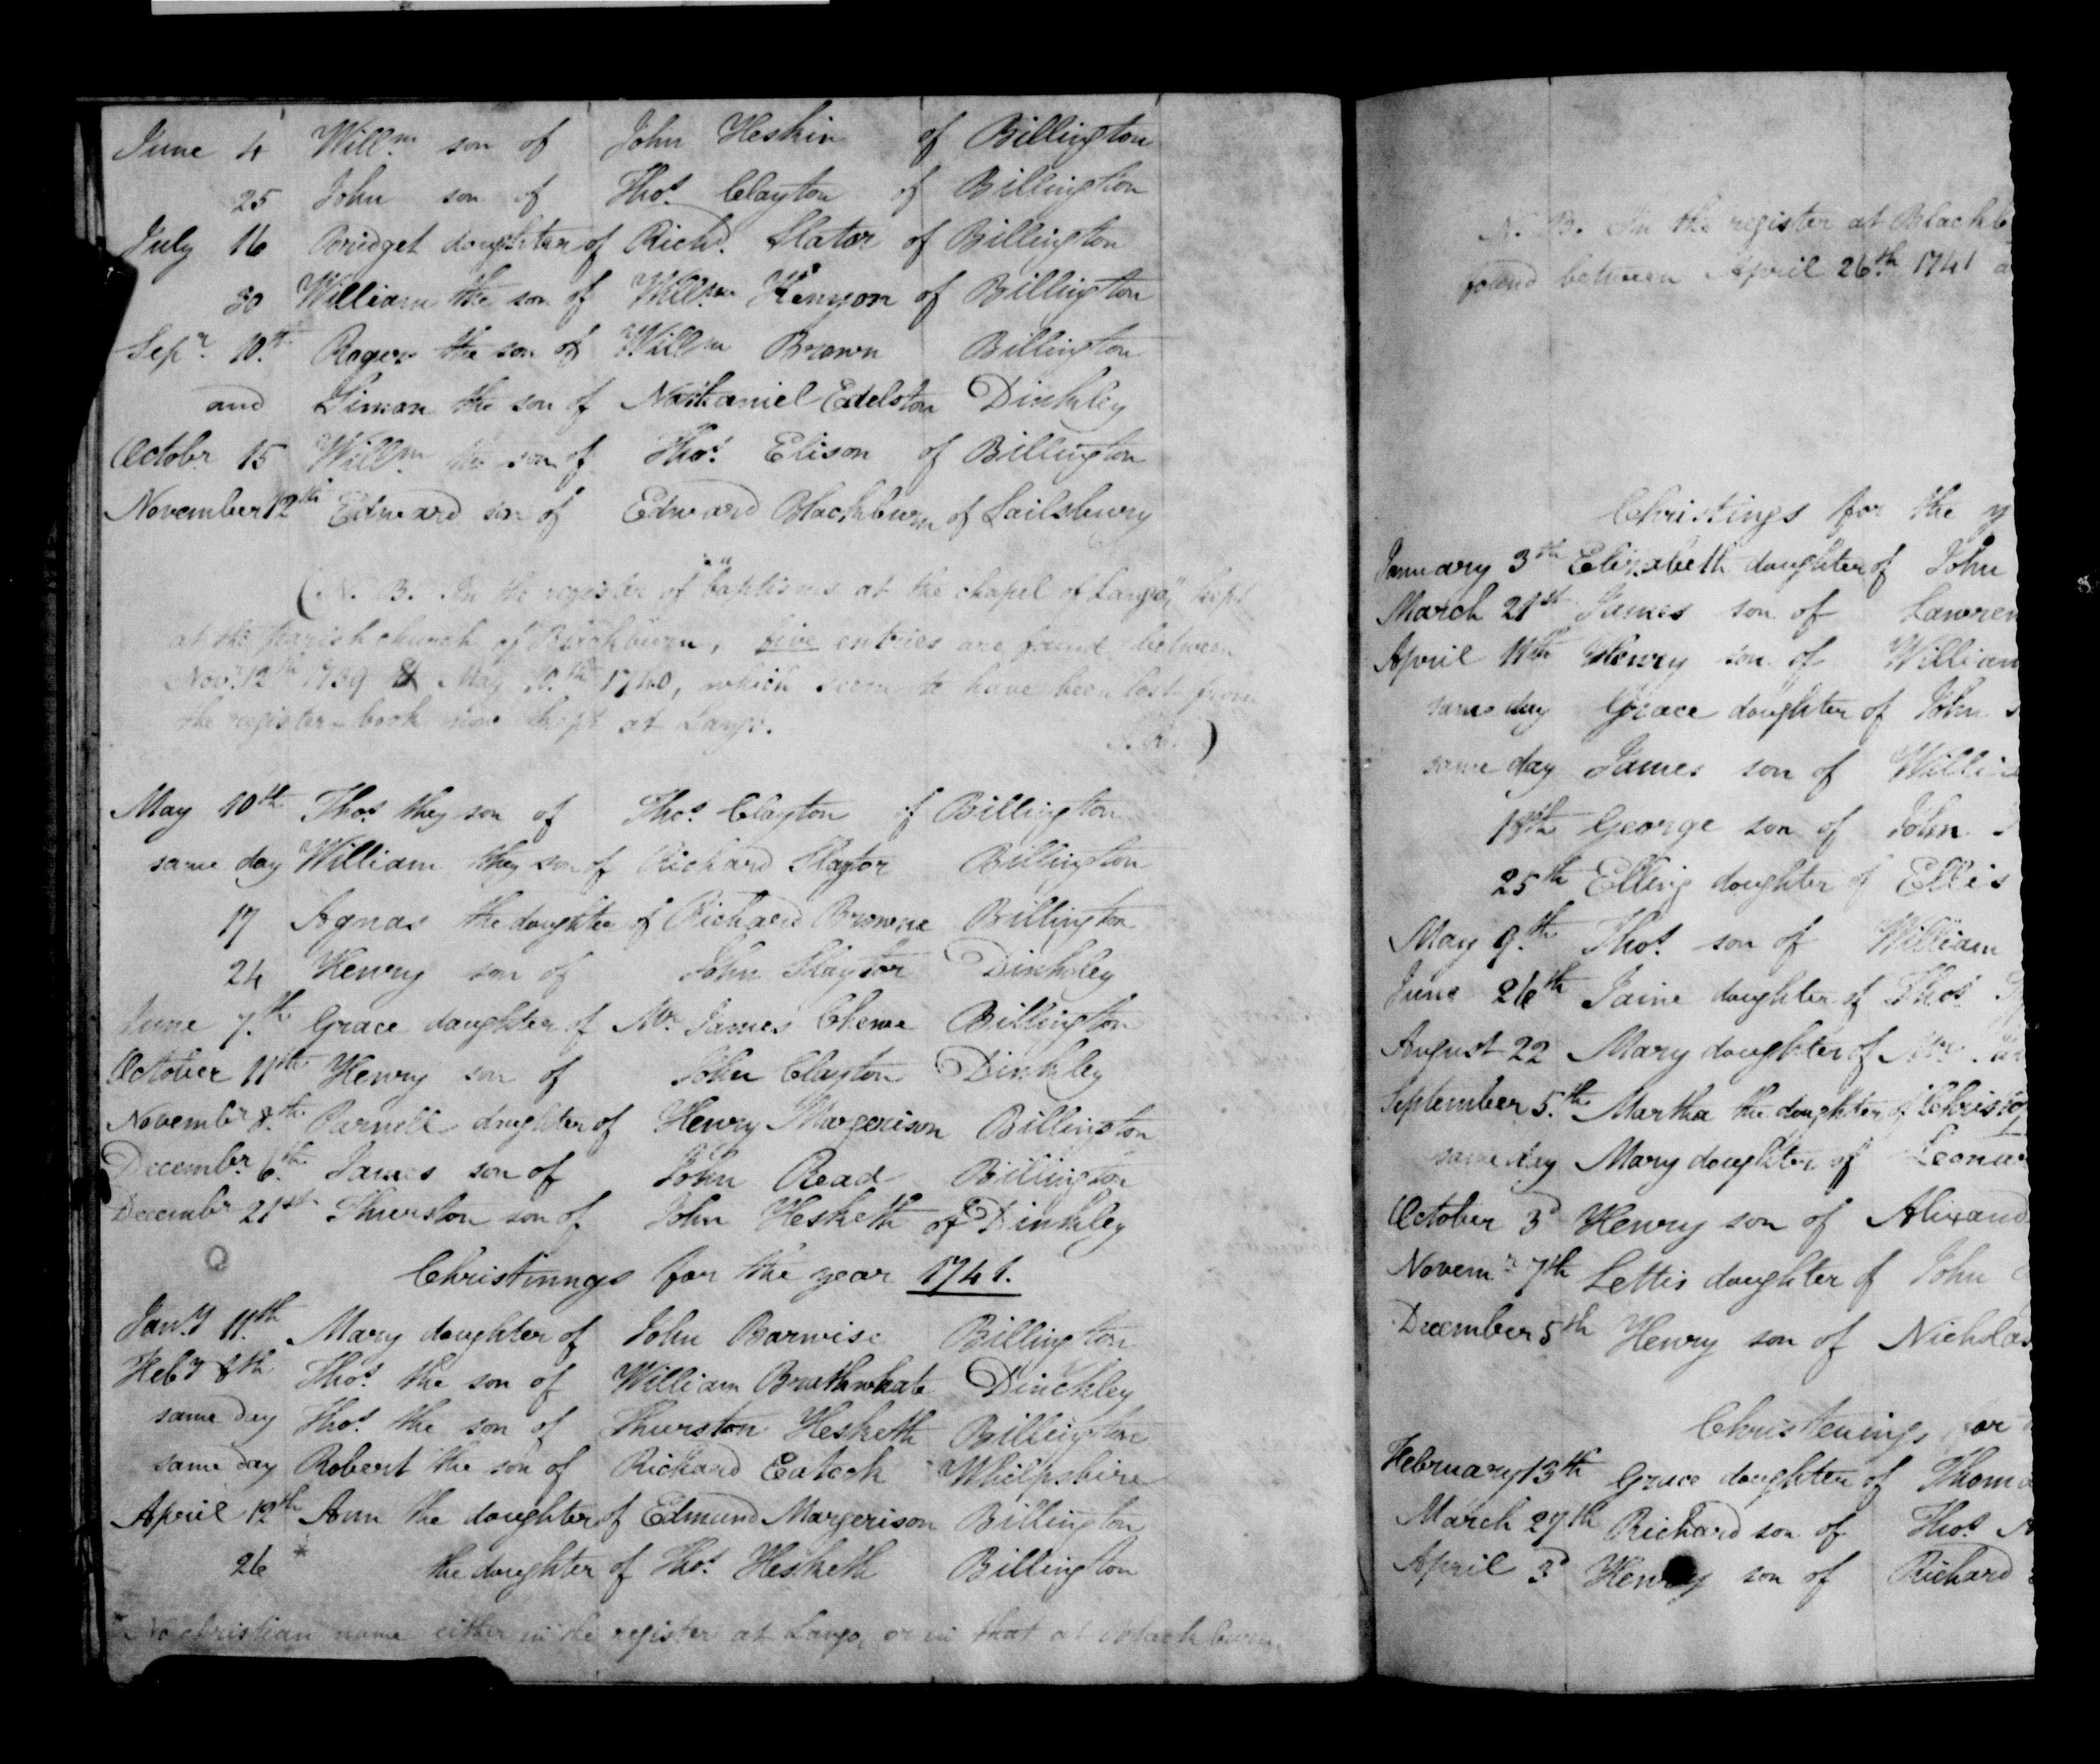 June 4 Willm son of John Heskin of Billington
25 John son of Thos. Clayton of Billington
July 16 Bridget daughter of Richd. Slator of Billington
30 William the son of Willm Kenyon of Billington
Sepr. 10th Roger the son of Willm Brown Billington
and Simon the son of Nathaniel Edelston Dinkley
Octobr 15 Willm the son of Thos. Elison of Billington
November 12th Edward son of Edward Blackburn of Sailsbury
(N. B. In the register of "baptisms at the chapel of Lango," kept
at the parish church of Blackburn, five entries are found between
Novr. 12th 1739 & May 10th 1740, which seem to have been lost from
the register-book now kept at Lango. )
May 10th Thos. they son of Thos. Clayton of Billington
same day William they son of Richard Slaytor Billington
17 Agnas the daughter of Richard Browne Billington
24 Henry son of John Slaytor Dinkley
June 7th Grace daughter of Mr. James Chewe Billington
October 11th Henry son of John Clayton Dinkley
Novembr 8th Parnell daughter of Henry Margerison Billington
Decembr. 6th James son of John Read Billington
Decembr 21st Thurston son of John Hesketh of Dinkley
Christnings for the year 1741.
Jany 11th Mary daughter of John Barwise Billington
Feby 8th Thos. the son of William Brathwhate Dinckley
same day Thos. the son of Thurston Hesketh Billington
same day Robert the son of Richard Eatock Whilpshire
April 12th Ann the daughter of Edmund Margerison Billington
26 * the daughter of Thos. Hesketh Billington
* No christian name either in the register at Lango, or in that at Blackburn.
N. B. In the register at Blackb
found between April 26th 1741 a
Christings for the y
January 3th Elizabeth daughter of John
March 21st James son of Lawren
April 11th Henry son of William
same day Grace daughter of John S
same day James son of Willia
18th George son of John
25th Elling daughter of Ellis
May 9th Thos. son of William
June 26th Jaine daughter of Thos.
August 22 Mary daughter of Mr.
September 5th Martha the daughter of Christop
same day Mary daughter of Leonar
October 3d Henry son of Alixand
Novemr 7th Lettis daughter of John
December 5th Henry son of Nicholas
Christenings for
February 13th Grace daughter of Thoma
March 27th Richard son of Thos.
April 3d Henry son of Richard